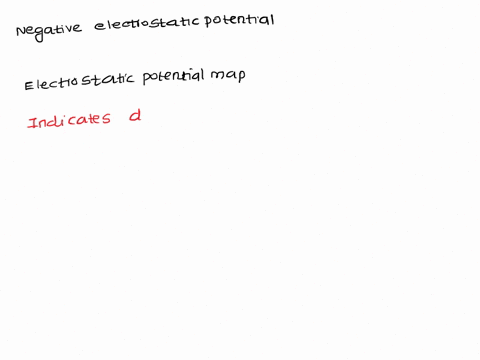 Negative electrostatic potential
Electrostatic potential map
Indicates d